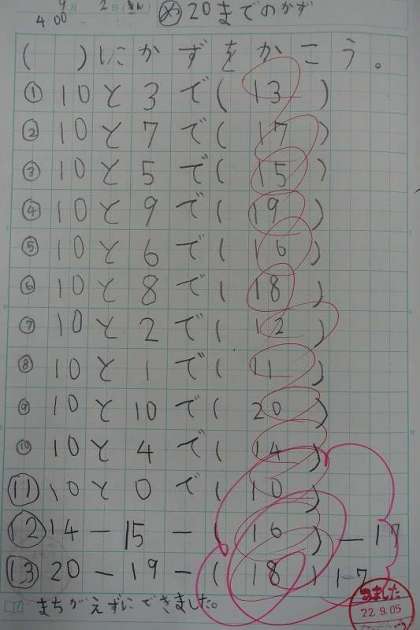 20までのかず
( )にかずをかこう。
① 10と3で(13)
② 10と7で(17)
③ 10と5で(15)
④ 10と9で(19)
⑤ 10と6で(16)
⑥ 10と8で(18)
⑦ 10と2で(12)
⑧ 10と1で(11)
⑨ 10と10で(20)
⑩ 10と4で(14)
⑪ 10と0で(10)
⑫ 14－15－(16)－17
⑬ 20－19－(18)17
まちがえずにできました。
みました
22.9.05